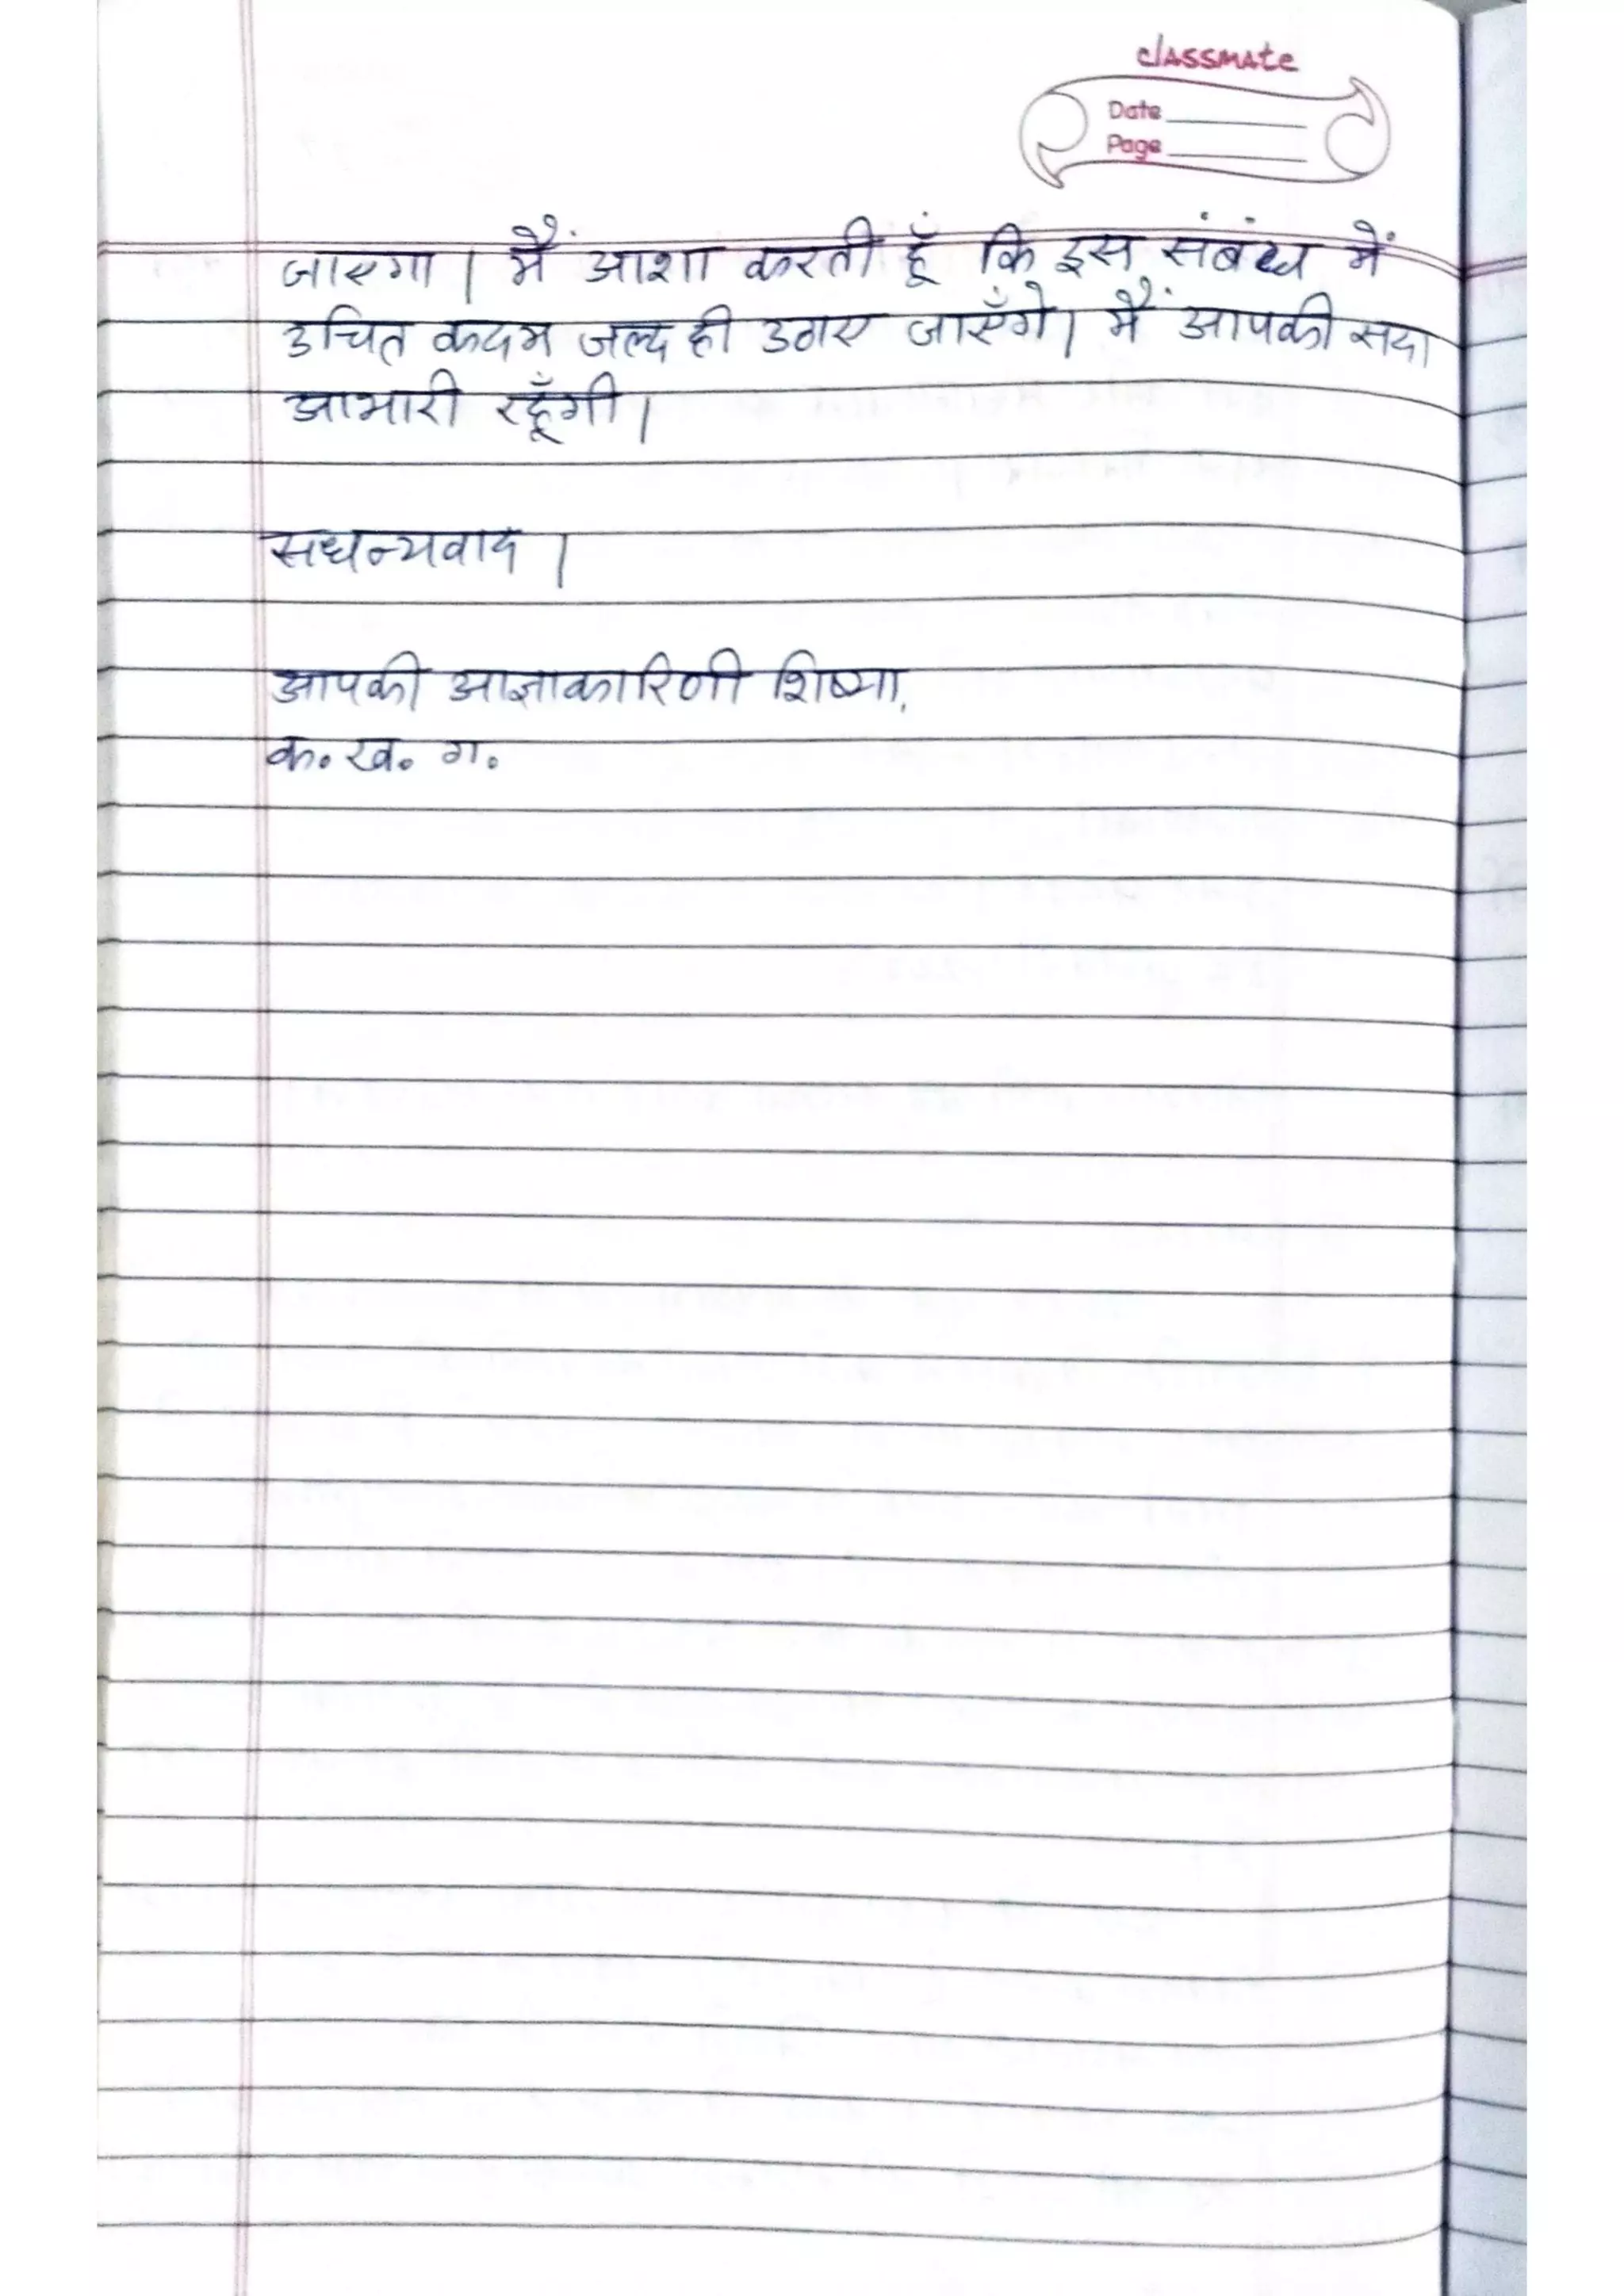 classmate
Date
Page
जाएगा। मैं आशा करती हूँ कि इस संबंध में
उचित कदम जल्द ही उठाए जाएँगे। मैं आपकी सदा
आभारी रहूँगी।
सधन्यवाद।
आपकी आज्ञाकारिणी शिष्या,
क. ख. ग.